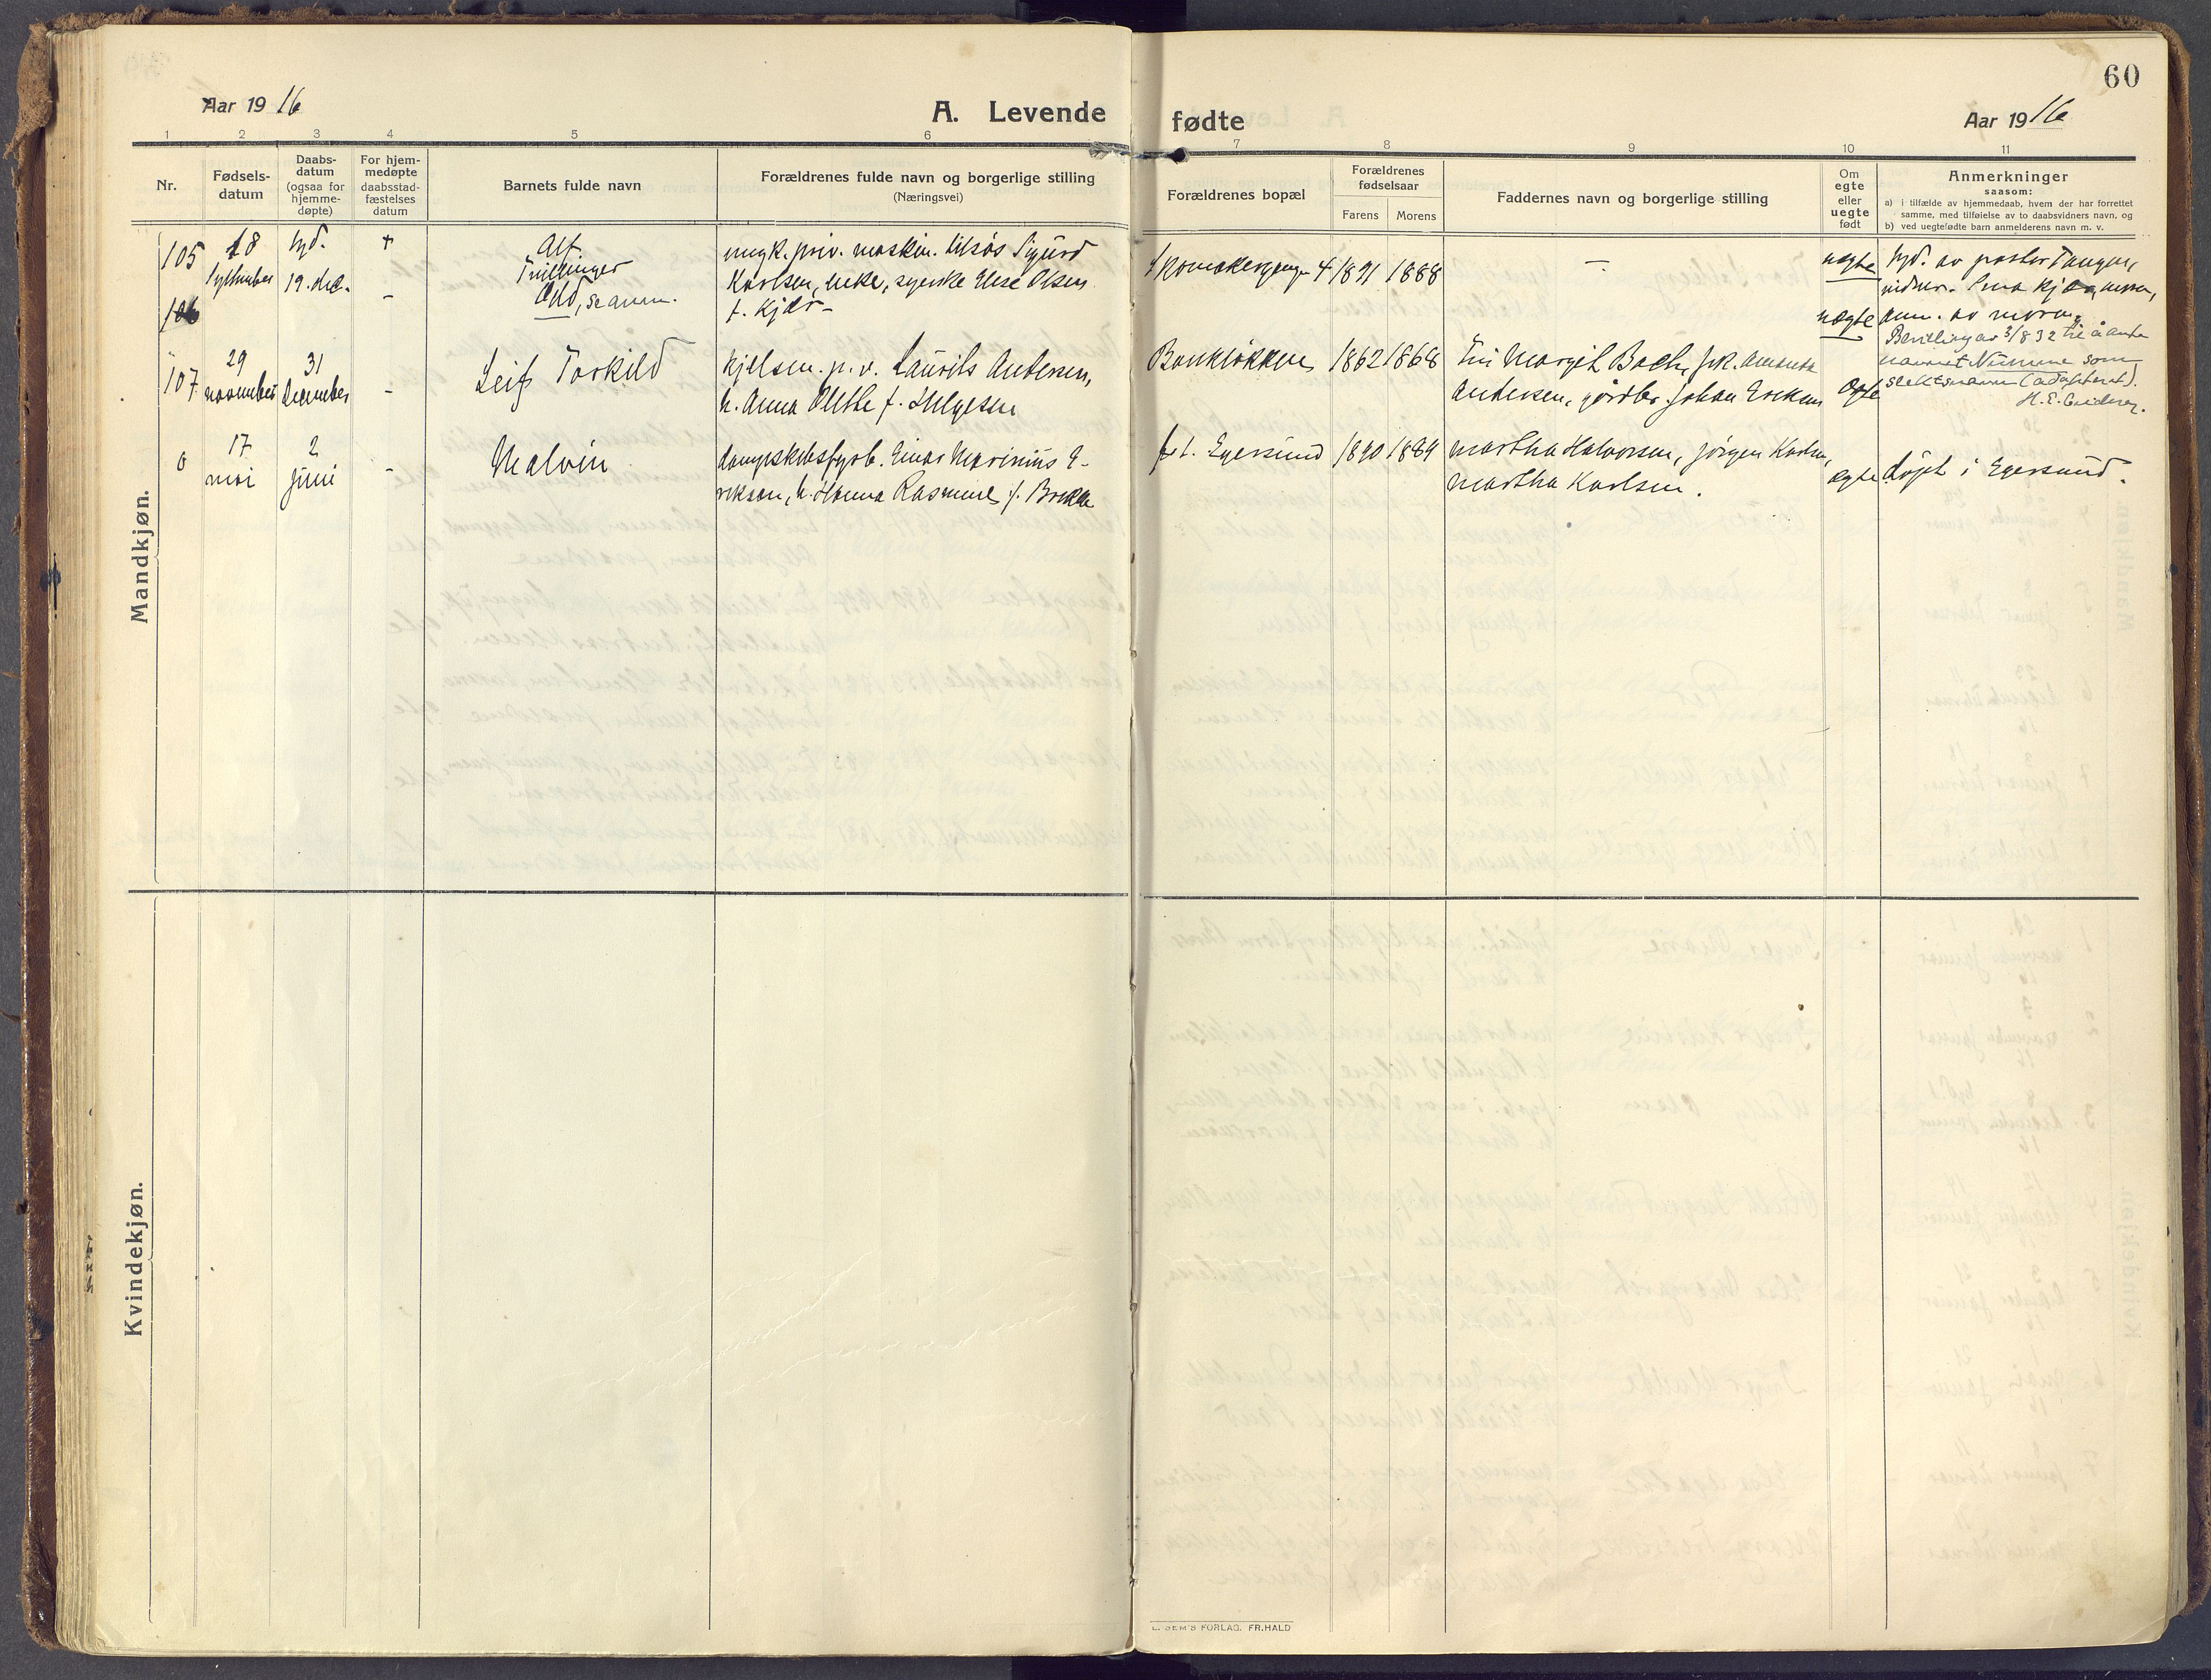 60
Aar 1916
A. Levende fødte
Aar 1916
1 2 3 4 5 6 7 8 9 10 11
Nr.
Fødsels-
datum
Daabs-
datum
(ogsaa for
hjemme-
døpte)
For hjem-
medøpte
daabsstad-
fæstelses
datum
Barnets fulde navn
Forældrenes fulde navn og borgerlige stilling
(Næringsvei)
Forældrenes bopæl
Forældrenes
fødselsaar
Farens Morens
Faddernes navn og borgerlige stilling
Om
egte
eller
uegte
født
Anmerkninger
saasom:
a) i tilfælde av hjemmedaab, hvem der har forrettet
samme, med tilføielse av to daabsvidners navn, og
b) ved uegtefødte barn anmelderens navn m. v.
Mandkjøn.
105
18
september
hjd.
19. dec.
+
Alf
Tvillinger
ungk. priv. maskin. Sigurd
Karlsen, enke, syerske Else Olsen
f. Kjær
4 1891 1888
–
uegte
hjd. av pastor Tangen,
106
–
Odd, se anm.
uegte
anm. av moren.
Bevilling av 3/8 32 til å anta
navnet som
slektsnavn (adoptert).
107
29
november
31
december
–
Leif Torkild
p. v. Laurits Andersen,
h. Anna Olethe f. Helgesen
Bankløkken
1862 1868
Fru Margit Bach, frk. Amanda
Andersen, Johan Eriksen
Egte
0
17
mai
2
juni
–
Malvin
dampskibsfyrb. Einar Marinius E-
riksen, h. Hanna Rasmine f. Brekke
f. t. Egersund
1890 1889
Martha Halvorsen, Jørgen Karlsen,
Martha Karlsen.
egte
døpt i Egersund.
Kvindekjøn.
E. SEM'S FORLAG. FR.HALD